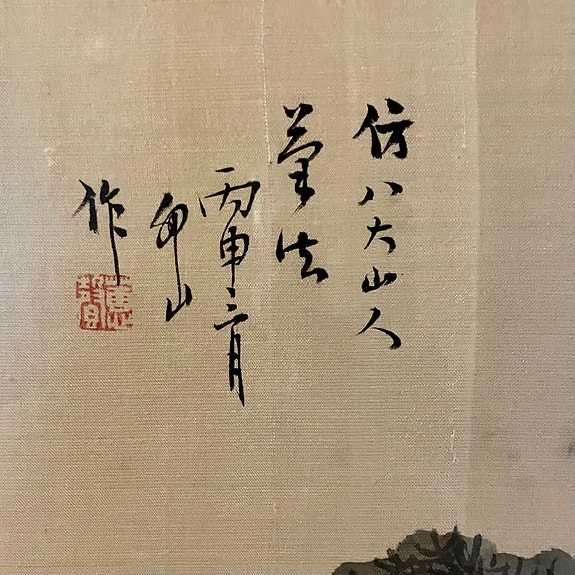 仿八大山人
筆法
丙申二月
山
作